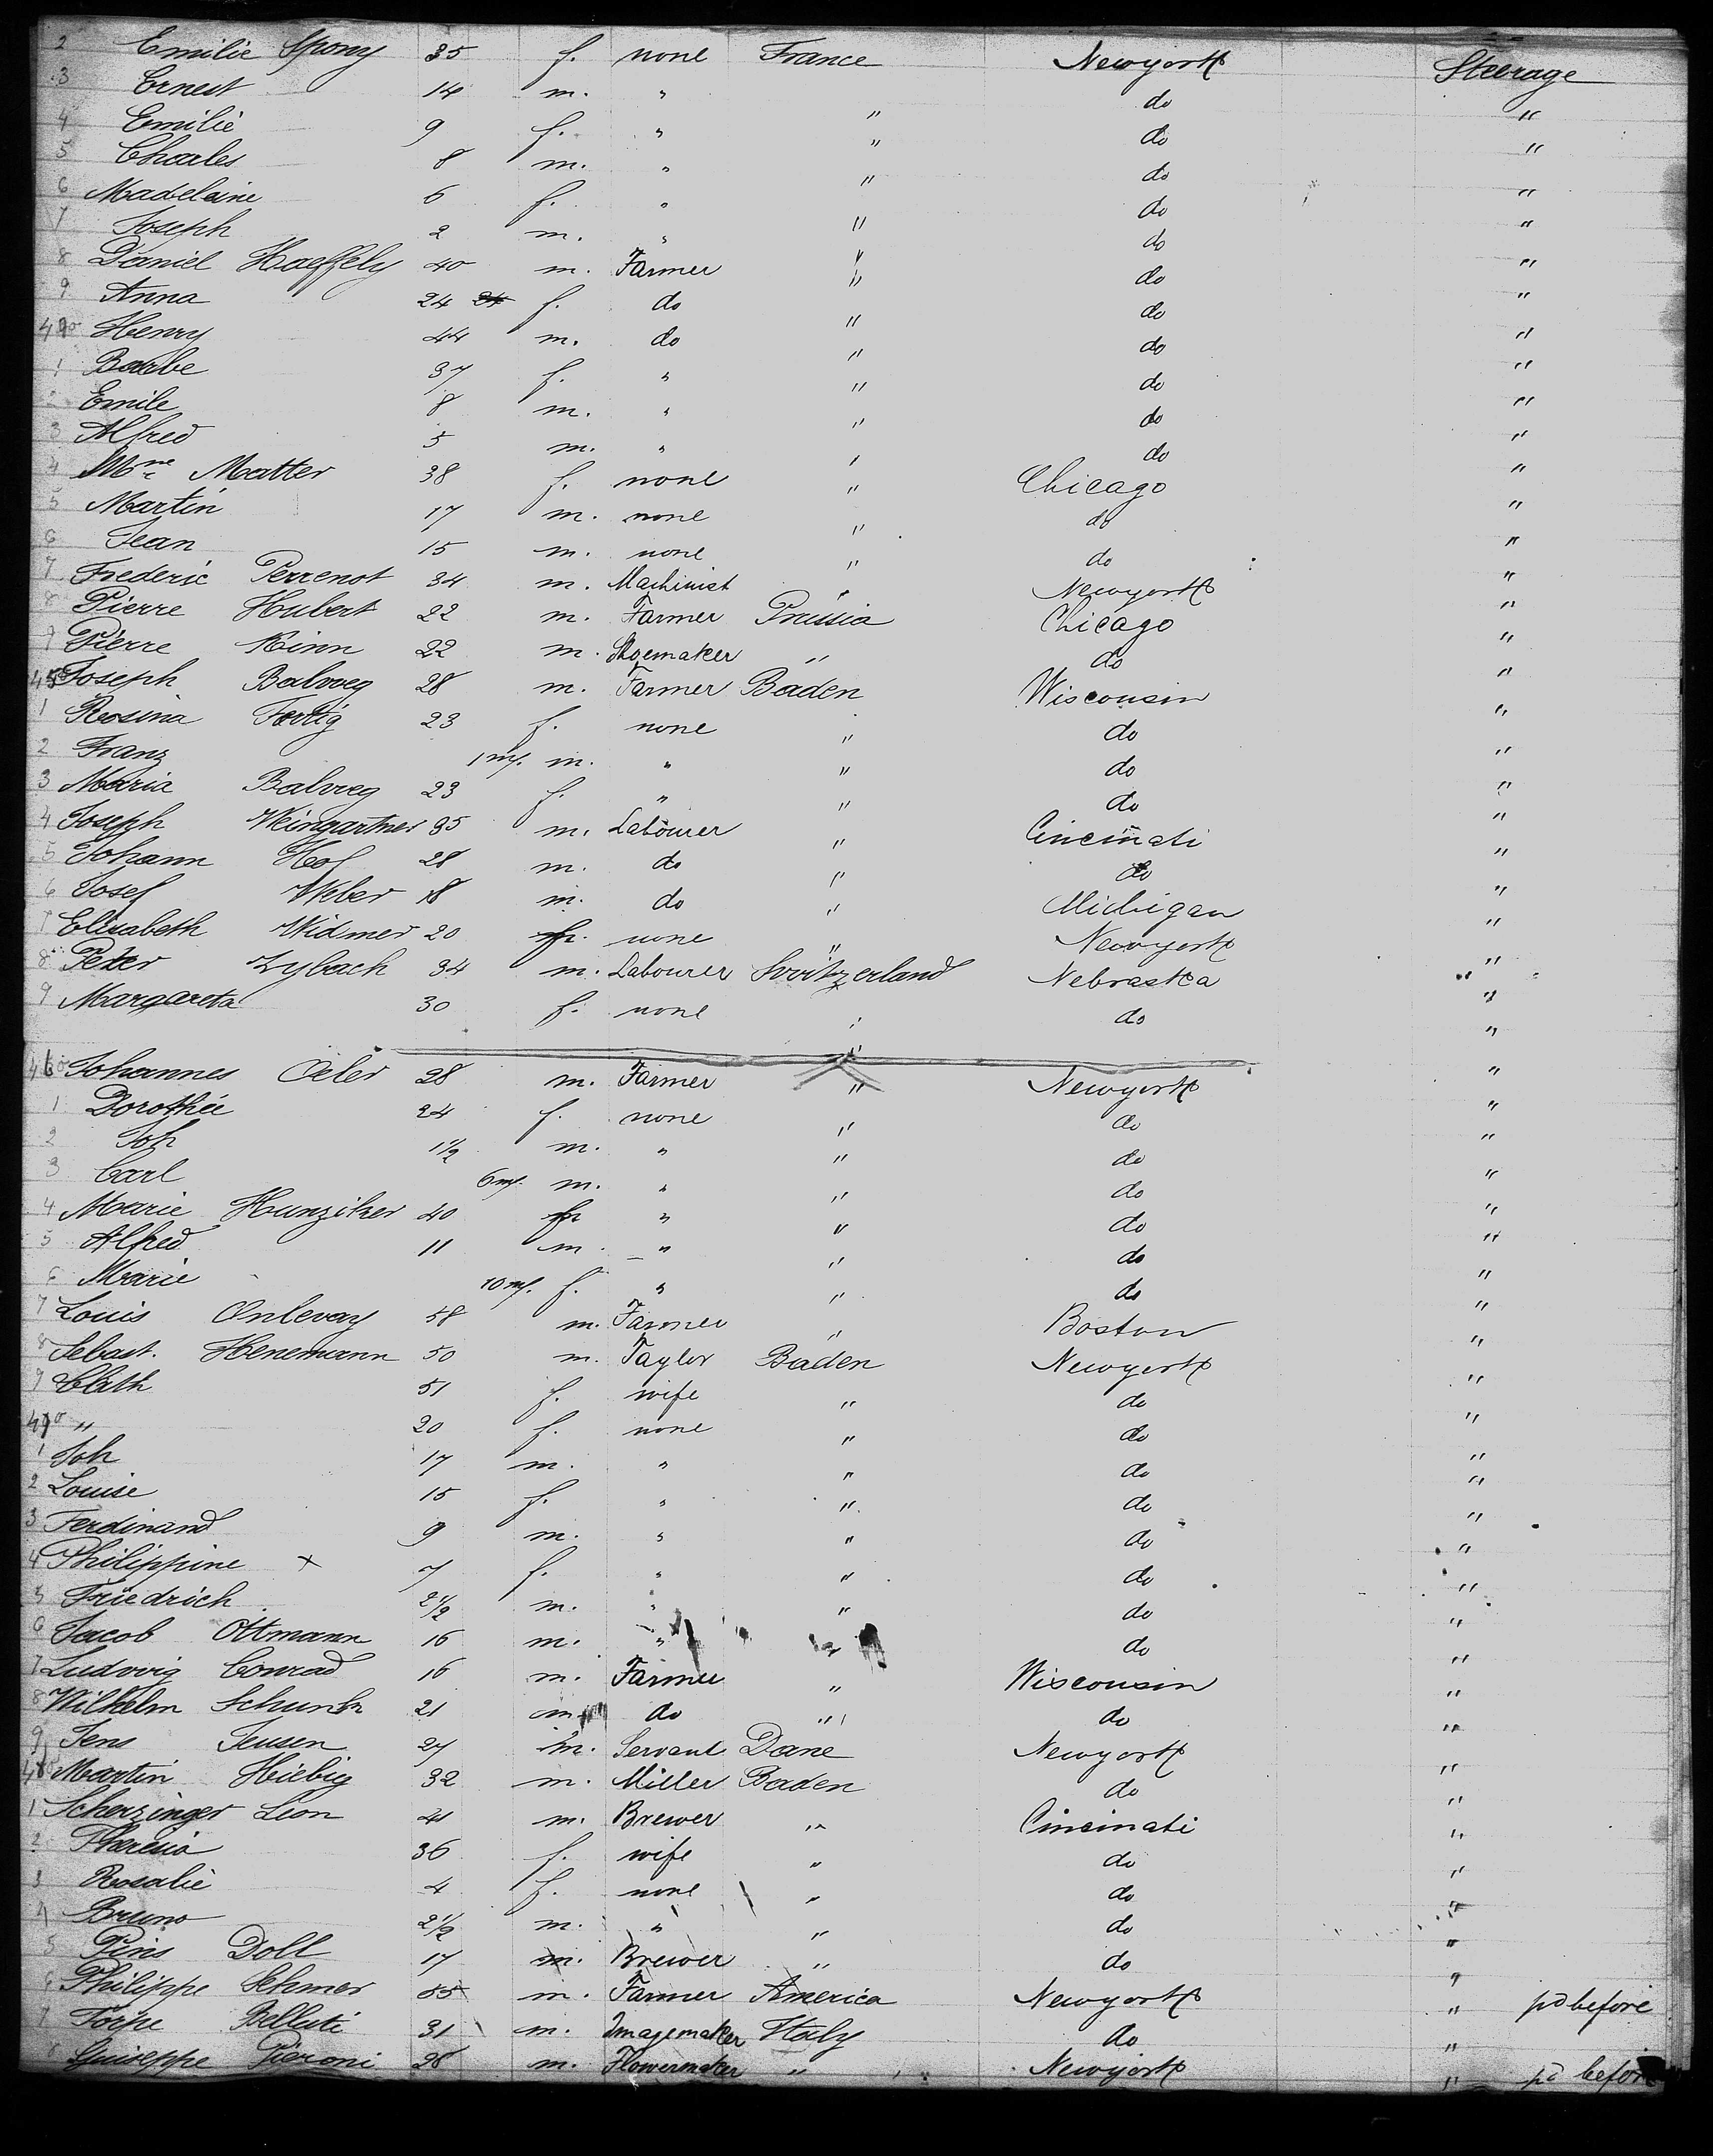 2 Emilie Spony 35 f. none France Newyork Steerage
3 Ernest 14 m. " " do "
4 Emilie 9 f. " " do "
5 Charles 8 m. " " do "
6 Madelaine 6 f. " " do "
7 Joseph 2 m. " " do "
8 Daniel Haeffely 40 m. Farmer " do "
9 Anna 24 24 f. do " do "
440 Henry 44 m. do " do "
1 Barbe 37 f. " " do "
2 Emile 8 m. " " do "
3 Alfred 5 m. " " do "
4 Mme Matter 38 f. none " Chicago "
5 Martin 17 m. none " do "
6 Jean 15 m. none " do "
7 Frederic Perrenot 34 m. Machinist " Newyork "
8 Pierre Hubert 22 m. Farmer Prussia Chicago "
9 Pierre Kinn 22 m. Shoemaker " do "
450 Joseph Balweg 28 m. Farmer Baden Wisconsin "
1 Rosina Fertig 23 f. none " do "
2 Franz 1 m/. m. " " do "
3 Maria Balweg 23 f. " " do "
4 Joseph Weingartner 35 m. Labourer " Cincinati "
5 Johann Hof 28 m. do " do "
6 Josef Weber 18 m. do " Michigan "
7 Elisabeth Widmer 20 f. none " Newyork "
8 Peter Zybach 34 m. Labourer Switzerland Nebraska "
9 Margareta 30 f. none " do "
460 Johannes Oeler 28 m. Farmer " Newyork "
1 Dorothée 24 f. none " do "
2 Joh 1 1/2 m. " " do "
3 Carl 6 m/. m. " " do "
4 Marie Hunziker 40 f. " " do "
5 Alfred 11 m. " " do "
6 Marie 10 m/. f. " " do "
7 Louis Onlevay 58 m. Farmer " Boston "
8 Sebast. Henemann 50 m. Taylor Baden Newyork "
9 Cath 51 f. wife " do "
470 " 20 f. none " do "
1 Joh 17 m. " " do "
2 Louise 15 f. " " do "
3 Ferdinand 9 m. " " do "
4 Philippine x 7 f. " " do "
5 Friedrich 2 1/2 m. " " do "
6 Jacob Ottmann 16 m. " " do "
7 Ludwig Conrad 16 m. Farmer " Wisconsin "
8 Wilhelm Schunk 21 m. do " do "
9 Jens Jensen 27 m. Servant Dane Newyork "
480 Martin Hiebig 32 m. Miller Baden do "
1 Scherzinger Leon 41 m. Brewer " Cincinati "
2 36 f. wife " do "
3 Rosalie 4 f. none " do "
4 Bruno 2 1/2 m. " " do "
5 Pius Doll 17 m. Brewer " do "
6 Philippe Sehmer 55 m. Farmer America Newyork " pd before
7 Torpe Bellati 31 m. Imagemaker Italy do "
8 Guiseppe Pieroni 28 m. Flowermaker " Newyork " pd before